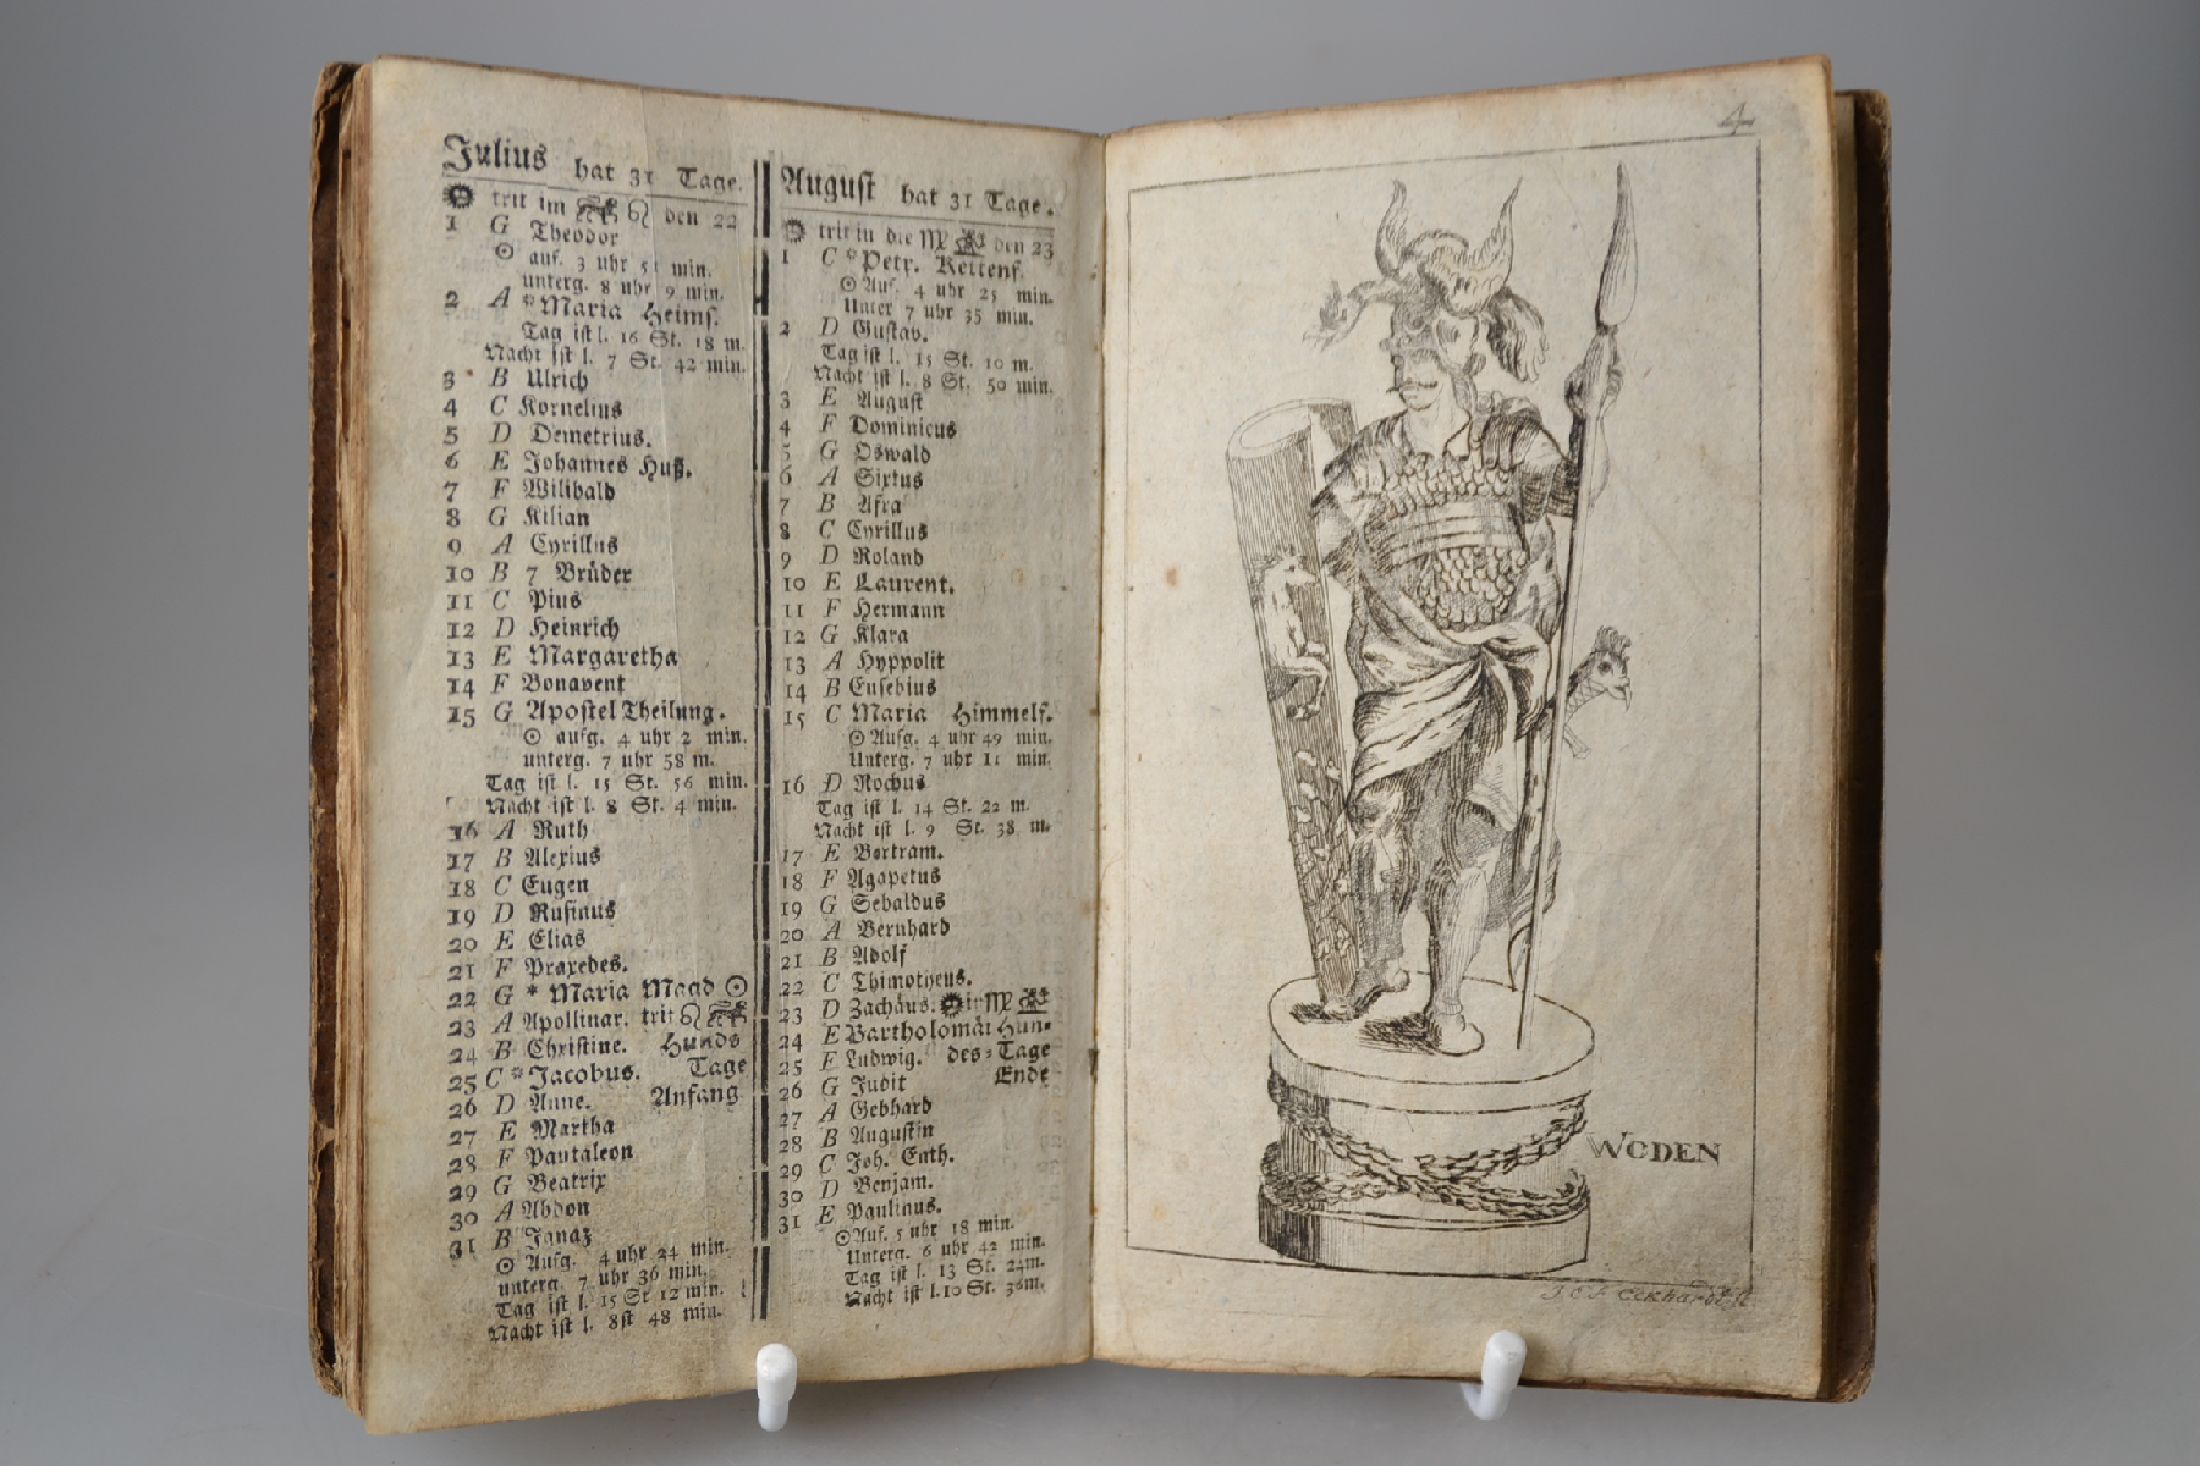 Julius hat 31 Tage.
trit im ♌ den 22
1 G Theodor
☉ auf. 3 uhr 51 min.
unterg. 8 uhr 9 min.
2 A *Maria Heims.
Tag ist l. 16 St. 18 m.
Nacht ist l. 7 St. 42 min.
3 B Ulrich
4 C Kornelius
5 D Demetrius.
6 E Johannes Huß.
7 F Wilibald
8 G Kilian
9 A Cyrillus
10 B 7 Brüder
11 C Pius
12 D Heinrich
13 E Margaretha
14 F Bonavent
15 G Apostel Theilung.
☉ aufg. 4 uhr 2 min.
unterg. 7 uhr 58 m.
Tag ist l. 15 St. 56 min.
Nacht ist l. 8 St. 4 min.
16 A Ruth
17 B Alexius
18 C Eugen
19 D Rufinus
20 E Elias
21 F Praxedes.
22 G * Maria Magd ☉
23 A Apollinar. trit ♌
24 B Christine. Hunds
25 C *Jacobus. Tage
26 D Anne. Anfang
27 E Martha
28 F Pantaleon
29 G Beatrix
30 A Abdon
31 B Ignaz
☉ Aufg. 4 uhr 24 min.
unterg. 7 uhr 36 min.
Tag ist l. 15 St 12 min.
Nacht ist l. 8st 48 min.
August hat 31 Tage.
trit in die ♍ den 23
1 C *Petr. Kettenf.
☉ Auf. 4 uhr 25 min.
Unter 7 uhr 35 min.
2 D Gustav.
Tag ist l. 15 St. 10 m.
Nacht ist l. 8 St. 50 min.
3 E August
4 F Dominicus
5 G Oswald
6 A Sixtus
7 B Afra
8 C Cyrillus
9 D Roland
10 E Laurent.
11 F Hermann
12 G Klara
13 A Hyppolit
14 B Eusebius
15 C Maria Himmelf.
☉ Aufg. 4 uhr 49 min.
Unterg. 7 uhr 11 min.
16 D Rochus
Tag ist l. 14 St. 22 m.
Nacht ist l. 9 St. 38 m.
17 E Bertram.
18 F Agapetus
19 G Sebaldus
20 A Bernhard
21 B Adolf
22 C Thimotheus.
23 D Zachäus. in ♍
24 E Bartholomäi Hun-
25 F Ludwig. des-Tage
26 G Judit Ende
27 A Gebhard
28 B Augustin
29 C Joh. Enth.
30 D Benjam.
31 E Paulinus.
☉ Auf. 5 uhr 18 min.
Unterg. 6 uhr 42 min.
Tag ist l. 13 St. 24m.
Nacht ist l. 10 St. 36m.
4
WODEN
J C F Eckhardt